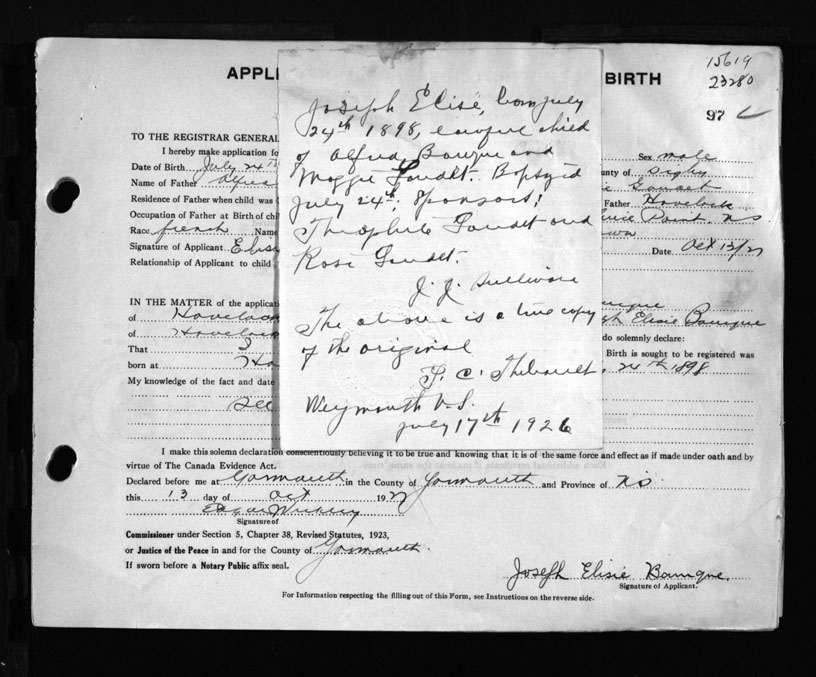 15619
23280
APPLI BIRTH
97
TO THE REGISTRAR GENERAL
I hereby make application fo
Sex male
Date of Birth July 24th
unty of Digby
Name of Father Alfred
e Goudet
Residence of Father when child was
Father Havelock
Occupation of Father at Birth of chil
Point. NS
Race french Name
Signature of Applicant Elisi
Date Oct 13/27
Relationship of Applicant to child
Joseph Elisé, born July
24th 1898, lawful child
of Alfred Bourque and
Maggie Goudet. Baptyzed
July 24th. Sponsors:
Theophile Goudet and
Rose Goudet.
J. J. Sullivan
The above is a true copy
of the original
T. C. Thibault
Weymouth N.S.
July 17th 1926
IN THE MATTER of the applicati
of Havelock
of Havelock
ph Elisie Bourque
do solemnly declare:
That I
Birth is sought to be registered was
born at Ha
24th 1898
My knowledge of the fact and date
See
I make this solemn declaration conscientiously believing it to be true and knowing that it is of the same force and effect as if made under oath and by
virtue of The Canada Evidence Act.
Declared before me at Yarmouth in the County of Yarmouth and Province of NS
this 13 day of Oct 1927
Signature of
Commissioner under Section 5, Chapter 38, Revised Statutes, 1923,
or Justice of the Peace in and for the County of Yarmouth.
If sworn before a Notary Public affix seal.
Joseph Elisie Bourque.
Signature of Applicant.
For Information respecting the filling out of this Form, see Instructions on the reverse side.